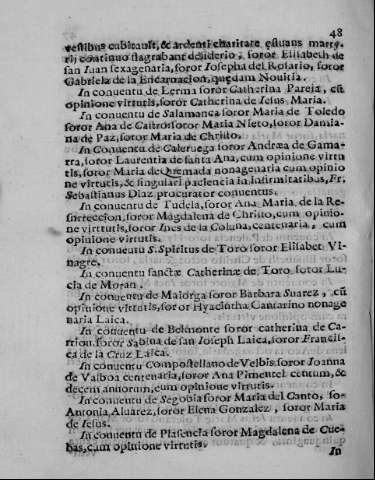 48
vestibus cubitauit, & ardenti charitate æstuans marty-
rij continuo flagrabant desiderio, soror Elisabeth de
san Iuan sexagenaria, soror Iosepha del Rosario, soror
Gabriela de la Encarnacion, quædam Nouitia.
In conuentu de Lerma soror Catherina Pareja, cũ
opinione virtutis, soror Catherina de Iesus Maria.
In conuentu de Salamanca soror Maria de Toledo
soror Ana de Castro soror Maria Nieto, soror Damia-
na de Paz, soror Maria de Christo.
In Conuentu de Caleruega soror Andræa de Gama-
rra, soror Laurentia de santa Ana, cum opinione virtu
tis, soror Maria de Quemada nonagenaria cum opinio
ne virtutis, & singulari paciencia in infirmitatibus, Fr.
Sebastianus Diaz procurator conuentus.
In conuentu de Tudela, soror Ana Maria de la Re-
surreccion, soror Magdalena de Christo, cum opinio-
ne virttutis, soror Ines de la Coluna, centenaria, cum
opinione virtutis.
In conuentu S. Spiritus de Toro soror Elisabet Vi-
nagre,
In conuentu sanctæ Catherinæ de Toro soror Lu-
cia de Moran,
In conuentu de Maiorga soror Barbara Suarez, cũ
opinione virtutis, soror Hyacintha Cantarino nonage
naria Laica.
In conuentu de Belmonte soror catherina de Ca-
rrion, soror Sabina de san Ioseph Laica, soror Francis-
ca de la Cruz Laica.
In conuentu Compostellano de Velbis soror Joanna
de Valboa centenaria, soror Ana Pimentel centum, &
decem annorum, cum opinione virtutis.
In conuentu de Segobia soror Maria del Canto, so-
Antonia Aluarez, soror Elena Gonzalez, soror Maria
de Iesus.
In conuentu de Plasencia soror Magdalena de Cue-
bas, cum opinione virtutis.
In